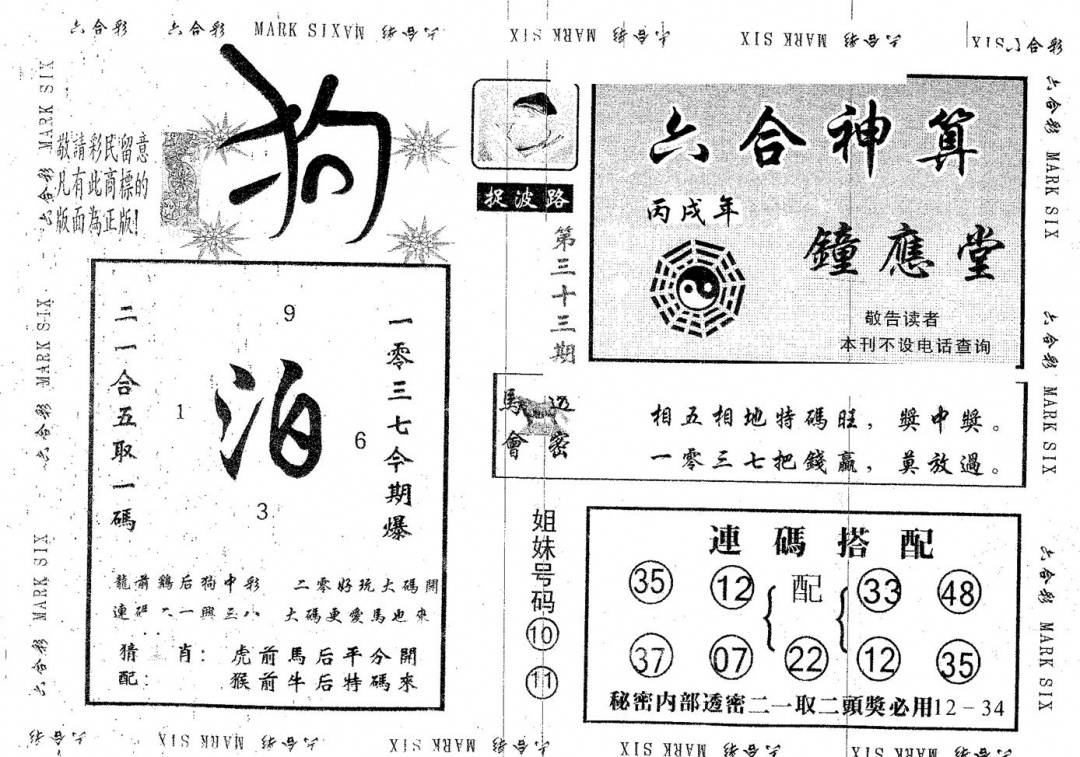 六合彩 六合彩 MARK SIX
MARK SIX 六合彩
MARK SIX 六合彩
六合彩
狗
敬請彩民留意
凡有此商標的
版面為正版!
捉波路
第三十三期
六合神算
丙戌年
鐘應堂
敬告读者
本刊不设电话查询
二一合五取一碼
9
1
泊
6
3
一零三七今期爆
龍前鷄后狗中彩 二零好玩大碼開
大碼更愛馬也來
猜 肖: 虎前馬后平分開
配: 猴前牛后特碼來
馬會
透密
相五相地特碼旺，獎中獎。
一零三七把錢贏，莫放過。
姐妹号码
10
11
連碼搭配
35 12 配 33 48
37 07 22 12 35
秘密内部透密二一取二頭獎必用12-34
六合彩 MARK SIX
六合彩 MARK SIX
六合彩 MARK SIX
六合彩 MARK SIX
六合彩 MARK SIX
六合彩 MARK SIX
六合彩
MARK SIX 六合彩
MARK SIX 六合彩
MARK SIX 六合彩
MARK SIX 六合彩